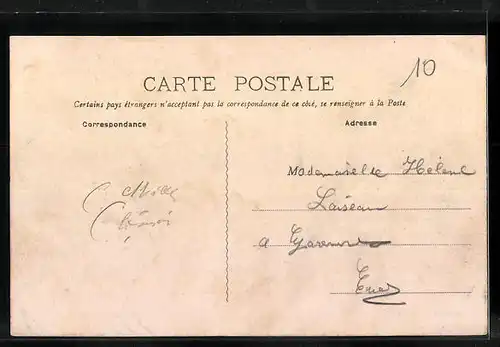 10
CARTE POSTALE
Certains pays étrangers n'acceptent pas la correspondance de ce côté, se renseigner à la Poste
Correspondance
Adresse
Mademoiselle Hélène
Loiseau
a